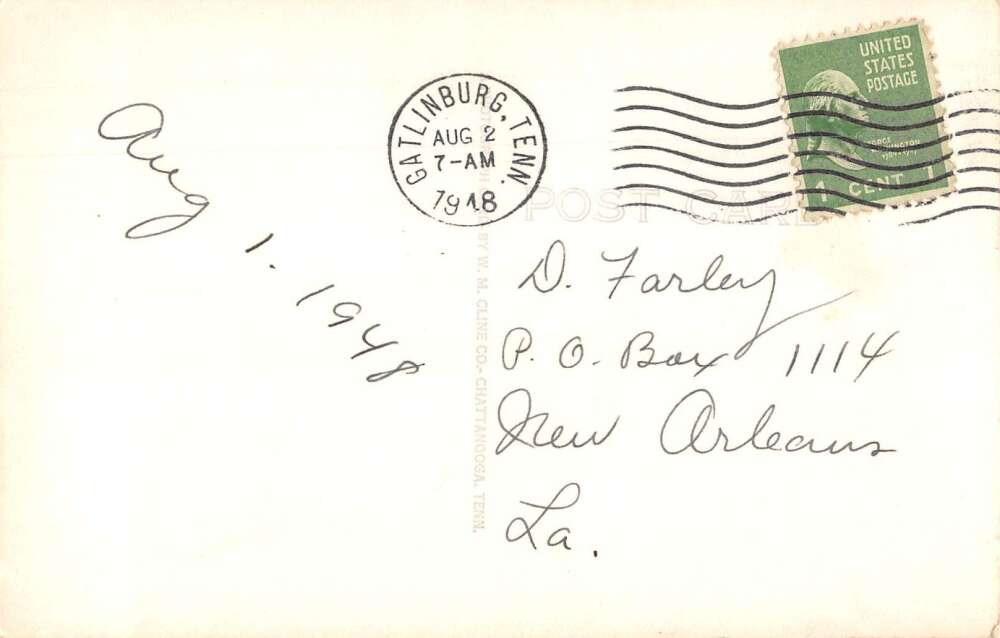 Aug 1. 1948
GATLINBURG, TENN.
AUG 2
7-AM
1948
UNITED
STATES
POSTAGE
1 CENT 1
POST CARD
D. Farley
P. O. Box 1114
New Orleans
La.
BY W. M. CLINE CO.- CHATTANOOGA, TENN.